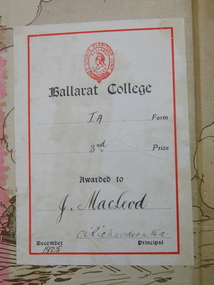 Ballarat College
IA Form
3rd Prize
Awarded to
J. MacLeod
December Principal
1925